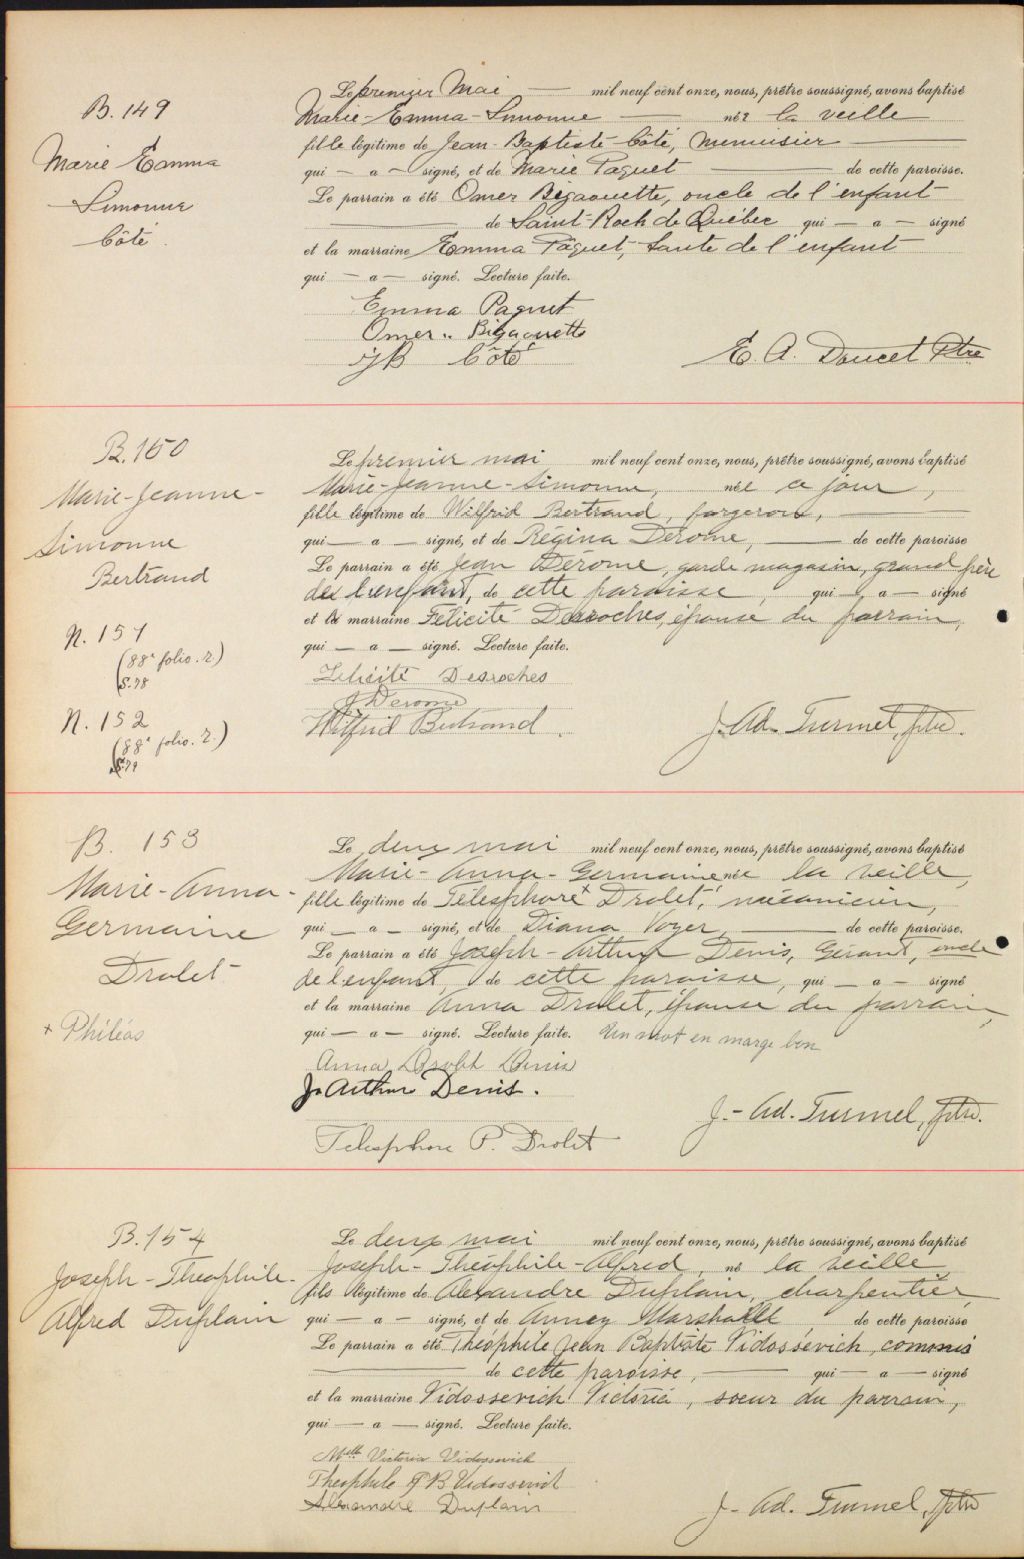 B. 149
Marie Emma
Simonne
Côté.
Le premier Mai — mil neuf cent onze, nous, prêtre soussigné, avons baptisé
Marie-Emma-Simonne — née la veille
fille légitime de Jean-Baptiste Côté, menuisier —
qui — a — signé, et de Marie Paquet — de cette paroisse.
Le parrain a été Omer Bigaouette, oncle de l'enfant
— de Saint-Roch de Québec qui — a — signé
et la marraine Emma Paquet, tante de l'enfant
qui — a — signé. Lecture faite.
Emma Paquet
Omer Bigaouette
JB Côté
E. A. Doucet Ptre
B. 150
Marie-Jeanne-
Simonne
Bertrand
N. 151
(88e folio. r.)
S. 78
N. 152
(88e folio. r.)
S. 79
Le premier mai mil neuf cent onze, nous, prêtre soussigné, avons baptisé
Marie-Jeanne-Simonne, née ce jour,
fille légitime de Wilfrid Bertrand, forgeron, —
qui — a — signé, et de Régina Dérome, — de cette paroisse
Le parrain a été Jean Dérome, garde magasin, grand père
de l'enfant, de cette paroisse, qui — a — signé
et la marraine Félicité Desroches, épouse du parrain,
qui — a — signé. Lecture faite.
Félicité Desroches
J Derome
Wilfrid Bertrand
J.-Ad. Turmel, ptre.
B. 153
Marie-Anna-
Germaine
Drolet
+ Philéas
Le deux mai mil neuf cent onze, nous, prêtre soussigné, avons baptisé
Marie-Anna-Germaine née la veille,
fille légitime de Télesphore + Drolet, mécanicien,
qui — a — signé, et de Diana Voyer, — de cette paroisse.
Le parrain a été Joseph-Arthur Denis, Gérant, oncle
de l'enfant, de cette paroisse, qui — a — signé
et la marraine Anna Drolet, épouse du parrain,
qui — a — signé. Lecture faite. Un mot en marge bon
Anna Drolet Denis
J. Arthur Denis.
Telesphore P. Drolet
J.-Ad. Turmel, ptre.
B. 154
Joseph-Théophile-
Alfred Duplain
Le deux mai mil neuf cent onze, nous, prêtre soussigné, avons baptisé
Joseph-Théophile-Alfred, né la veille
fils légitime de Alexandre Duplain, charpentier,
qui — a — signé, et de Anney Marshall de cette paroisse
Le parrain a été Théophile Jean Baptiste Vidossévich, commis
— de cette paroisse, — qui — a — signé
et la marraine Vidossevich Victoria, soeur du parrain,
qui — a — signé. Lecture faite.
Melle Victoria Vidossevich
Theophile J B Vidossevich
Alexandre Duplain
J.-Ad. Turmel, ptre